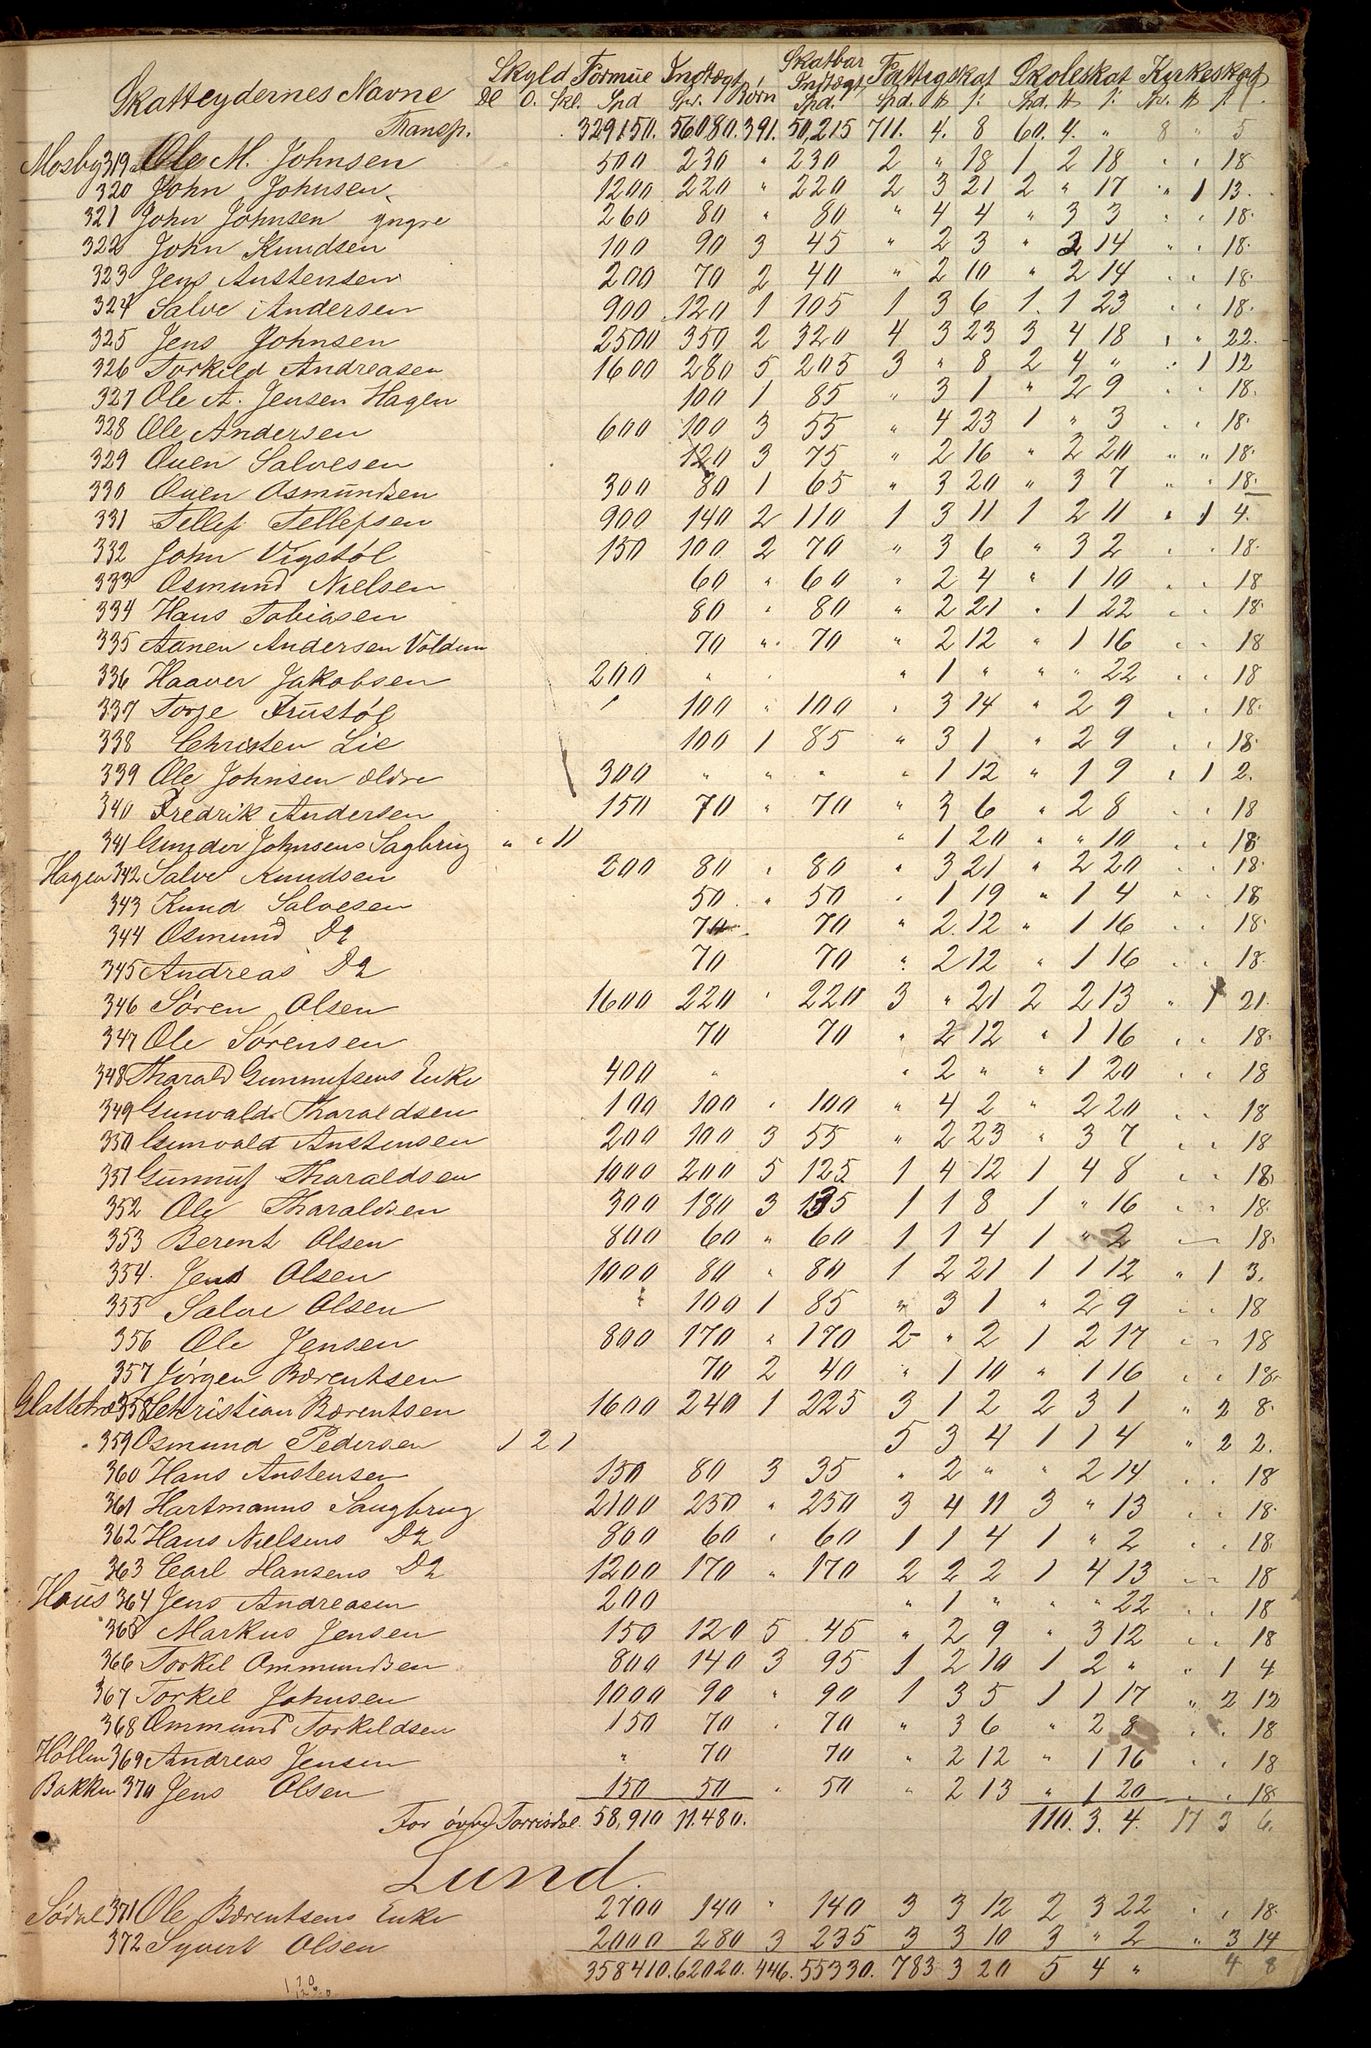 Skatteydernes Navne Skyld Formue Indtægt Børn Skatbar Indtægt Fattigskat Skoleskat Kirkeskat
Dl O. Skl. Spd Spd. Spd. Spd. # ſ: Spd. # ſ: Spd. # ſ.
Transp. 329150. 56080. 391. 50,215 711. 4. 8 60. 4. " 8 " 5
Mosby 319 Ole M. Johnsen 500 230 " 230 2 " 18 1 2 18 " " 18
320 John Johnsen 1200 220 " 220 2 3 21 2 " 17 " 1 13
321 John Johnsen yngre 260 80 " 80 " 4 4 " 3 3 " " 18
322 John Knudsen 100 90 3 45 " 2 3 " 2 14 " " 18
323 Jens Austensen 200 70 2 40 " 2 10 " 2 14 " " 18
324 Salve Andersen 900 120 1 105 1 3 6 1 1 23 " " 18
325 Jens Johnsen 2500 350 2 320 4 3 23 3 4 18 " " 22
326 Torkild Andreasen 1600 280 5 205 3 " 8 2 4 " " 1 12
327 Ole A. Jensen Hagen 100 1 85 " 3 1 " 2 9 " " 18
328 Ole Andersen 600 100 3 55 " 4 23 1 " 3 " " 18
329 Ouen Salvesen 120 3 75 " 2 16 " 2 20 " " 18
330 Ouen Osmundsen 300 80 1 65 " 3 20 " 3 7 " " 18
331 Tellef Tellefsen 900 140 2 110 1 3 11 1 2 11 " 1 4
332 John Vigstøl 150 100 2 70 " 3 6 " 3 2 " " 18
333 Osmund Nielsen 60 " 60 " 2 4 " 1 10 " " 18
334 Hans Tobiasen 80 " 80 " 2 21 " 1 22 " " 18
335 Aanen Andersen Voldum 70 " 70 " 2 12 " 1 16 " " 18
336 Haaver Jakobsen 200 " " " 1 " " " 22 " " 18
337 Torje Frustøl " 100 " 100 " 3 14 " 2 9 " " 18
338 Christen Lie 100 1 85 " 3 1 " 2 9 " " 18
339 Ole Johnsen ældre 300 " " " " 1 12 " 1 9 " 1 2
340 Fredrik Andersen 150 70 " 70 " 3 6 " 2 8 " " 18
341 Gunder Johnsens Sagbrug " " 11 " 1 20 " " 10 " " 18
Hagen 342 Salve Knudsen 200 80 " 80 " 3 21 " 2 20 " " 18
343 Knud Salvesen 50 " 50 " 1 19 " 1 4 " " 18
344 Osmund Do 70 70 " 2 12 " 1 16 " " 18
345 Andreas Do 70 70 " 2 12 " 1 16 " " 18
346 Søren Olsen 1600 220 " 220 3 " 21 2 2 13 " 1 21
347 Ole Sørensen 70 70 " 2 12 " 1 16 " " 18
348 Tharald Gunnufsens Enke 400 " " 2 " " 1 20 " " 18
349 Gunvald Tharaldsen 100 100 " 100 " 4 2 " 2 20 " " 18
350 Gunvald Austensen 200 100 3 55 " 2 23 " 3 7 " " 18
351 Gunnuf Tharaldsen 1000 200 5 125 1 4 12 1 4 8 " " 18
352 Ole Tharaldsen 300 180 3 135 1 1 8 1 " 16 " " 18
353 Berent Olsen 800 60 " 60 1 1 4 1 " 2 " " 18
354. Jens Olsen 1000 80 " 80 1 2 21 1 1 12 " 1 3
355 Salve Olsen " 100 1 85 " 3 1 " 2 9 " " 18
356 Ole Jensen 800 170 " 170 2 " 2 1 2 17 " " 18
357 Jørgen Bærentsen 70 2 40 " 1 10 " 1 16 " " 18
Glattetræ 358 Christian Bærentsen 1600 240 1 225 3 1 2 2 3 1 " 2 8
" 359 Osmund Pedersen 1 2 1 5 3 4 1 1 4 " 2 2
360 Hans Austensen 150 80 3 35 " 2 " " 2 14 " " 18
361 Hartmanns Saugbrug 2100 250 " 250 3 4 11 3 " 13 " " 18
362 Hans Nielsens Do 800 60 " 60 1 1 4 1 " 2 " " 18
363 Carl Hansens Do 1200 170 " 170 2 2 2 1 4 13 " " 18
Haus 364 Jens Andreasen 200 " 1 " " " 22 " " 18
365 Markus Jensen 150 120 5 45 " 2 9 " 3 12 " " 18
366 Torkil Ommundsen 800 140 3 95 1 2 10 1 2 " " 1 4
367 Torkel Johnsen 1000 90 " 90 1 3 5 1 1 17 " 2 12
368 Ommund Torkildsen 150 70 " 70 " 3 6 " 2 8 " " 18
Hollen 369 Andreas Jensen " 70 70 " 2 12 " 1 16 " " 18
Bakken 370 Jens Olsen 150 50 " 50 " 2 13 " 1 20 " " 18
For øvre Torrisdal 58,910 11.480. 110. 3. 4. 17 3 6.
Lund.
Sødal 371 Ole Bærentsens Enke 2700 140 " 140 3 3 12 2 3 22 " " 18
372 Syvert Olsen 2000 280 3 235 3 3 10 3 " 2 " 3 14
358410. 62020. 446. 55330. 783 3 20 5 4 " 4 8